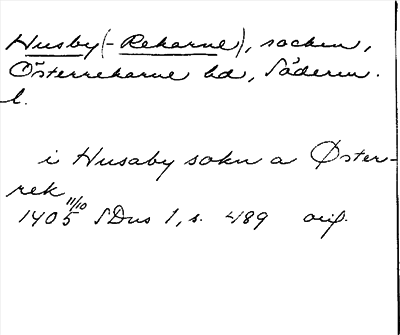 Husby (- Rekarne), socken,
Österrekarne hd, Söderm.
l.
i Husaby sokn a Øster-
rek
1405 11/10 SDns 1, s. 489 orig.